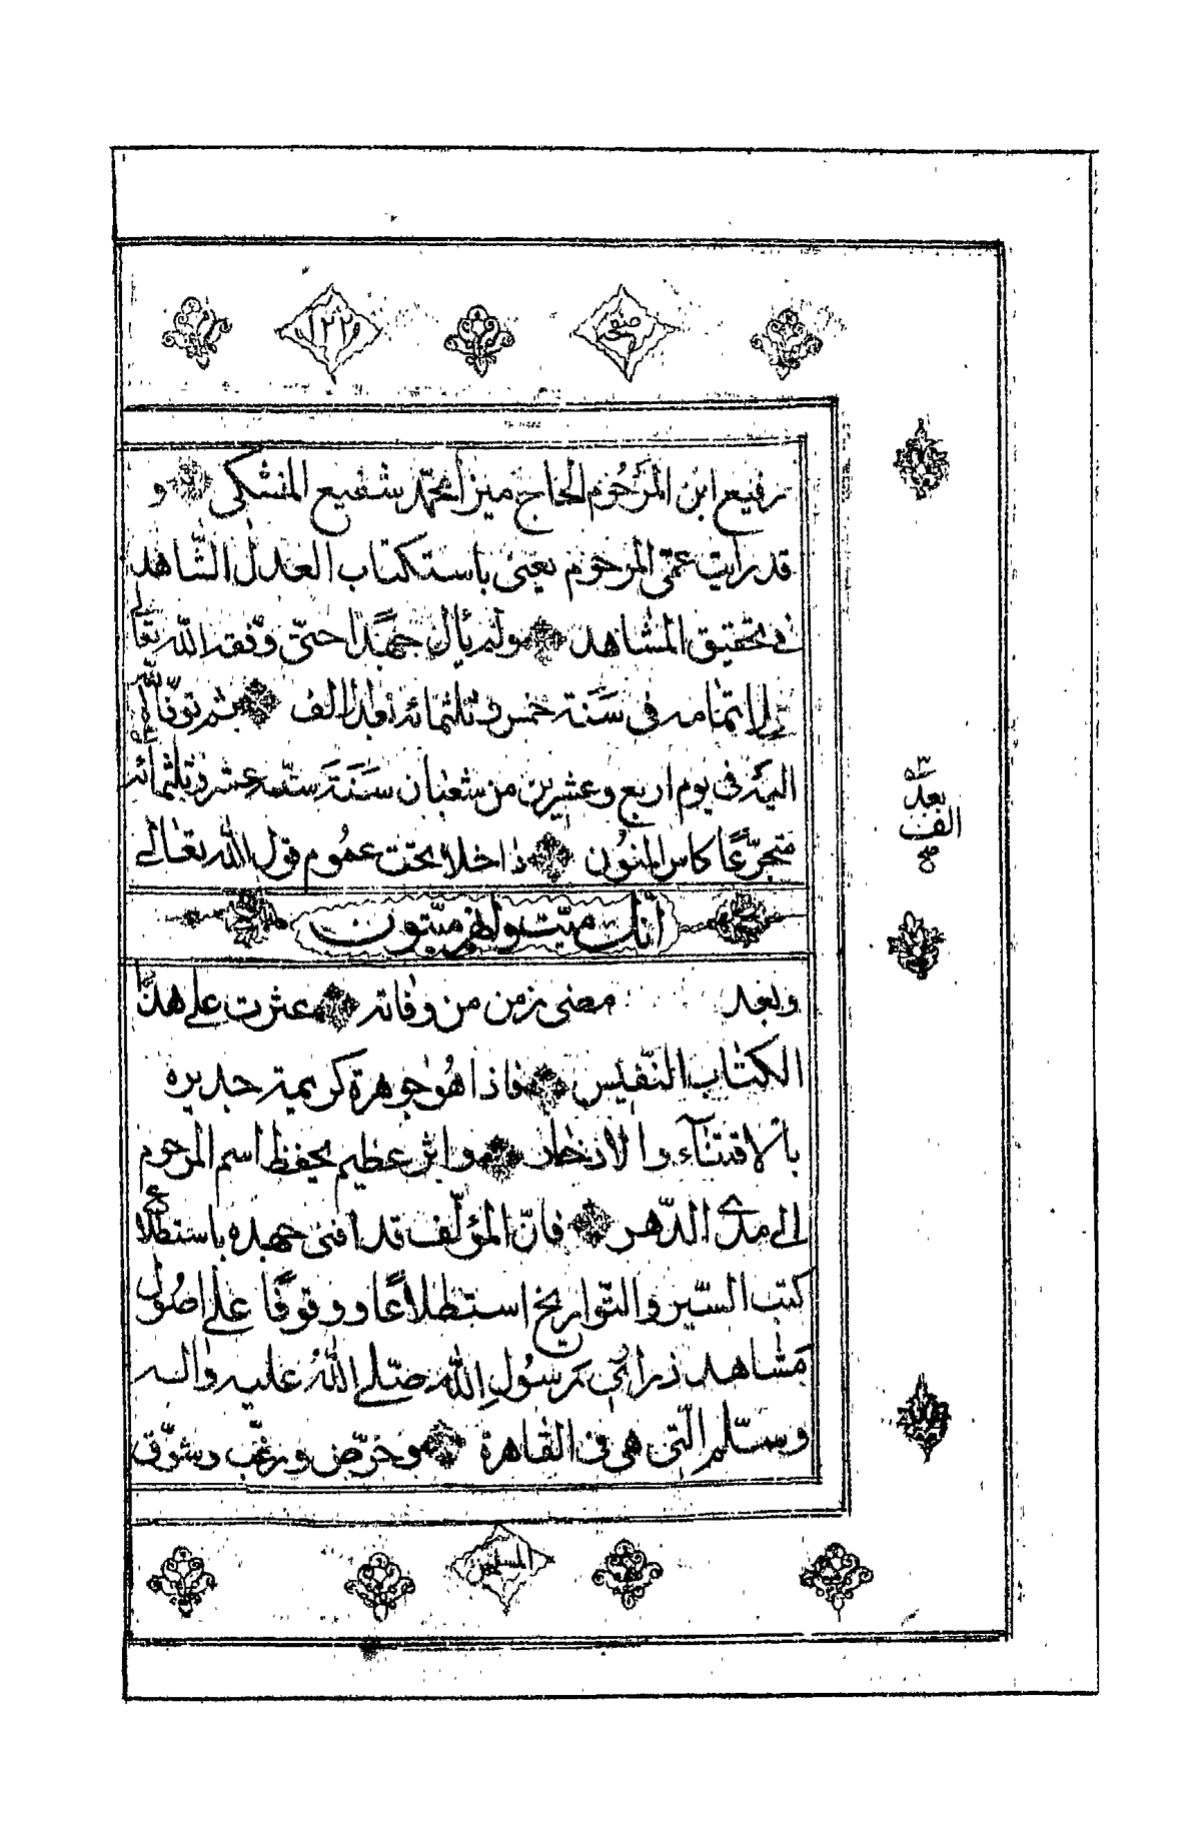 صفحه ١٢٢
رفيع ابن المَرحُوم الحاج ميرزا محمّد شفيع المشكى و
قد رايت عمّى المرحوم يعنى باستكتاب العدل الشّاهد
فى تحقيق المشاهد ولم يأل جهدًا حتىّ وفّقه الله تعالى
لإتمامه فى سَنَة خمس و ثلثمائة بعد الالف ثم توفّاه الله
اليه فى يوم اربع وعشرين من شعبان سَنَة ستة عشر و ثلثمائة
بعد الف صح
متجرّعًا كاس المنون داخلا تحت عمُوم قول الله تعالى
انّك ميّت وانّهم ميّتون
وبعد مضى زمن من وفاته عثرت على هذا
الكتاب النّفيس فاذا هو جوهرة كريمة جديره
بالاقتناء والادّخار واثر عظيم يحفظ اسم المرحوم
الى مدى الدّهر فانّ المؤلّف قد افنى جهده باستطلاع
كتب السّير والتّواريخ استطلاعًا ووقوفًا على اصُول
مشاهد ذرارى رسُولِ الله صلّى اللهُ عليه واله
وسلّم الّتى هى فى القاهرة وحرّض ورغّب وشوّق
المسلمين